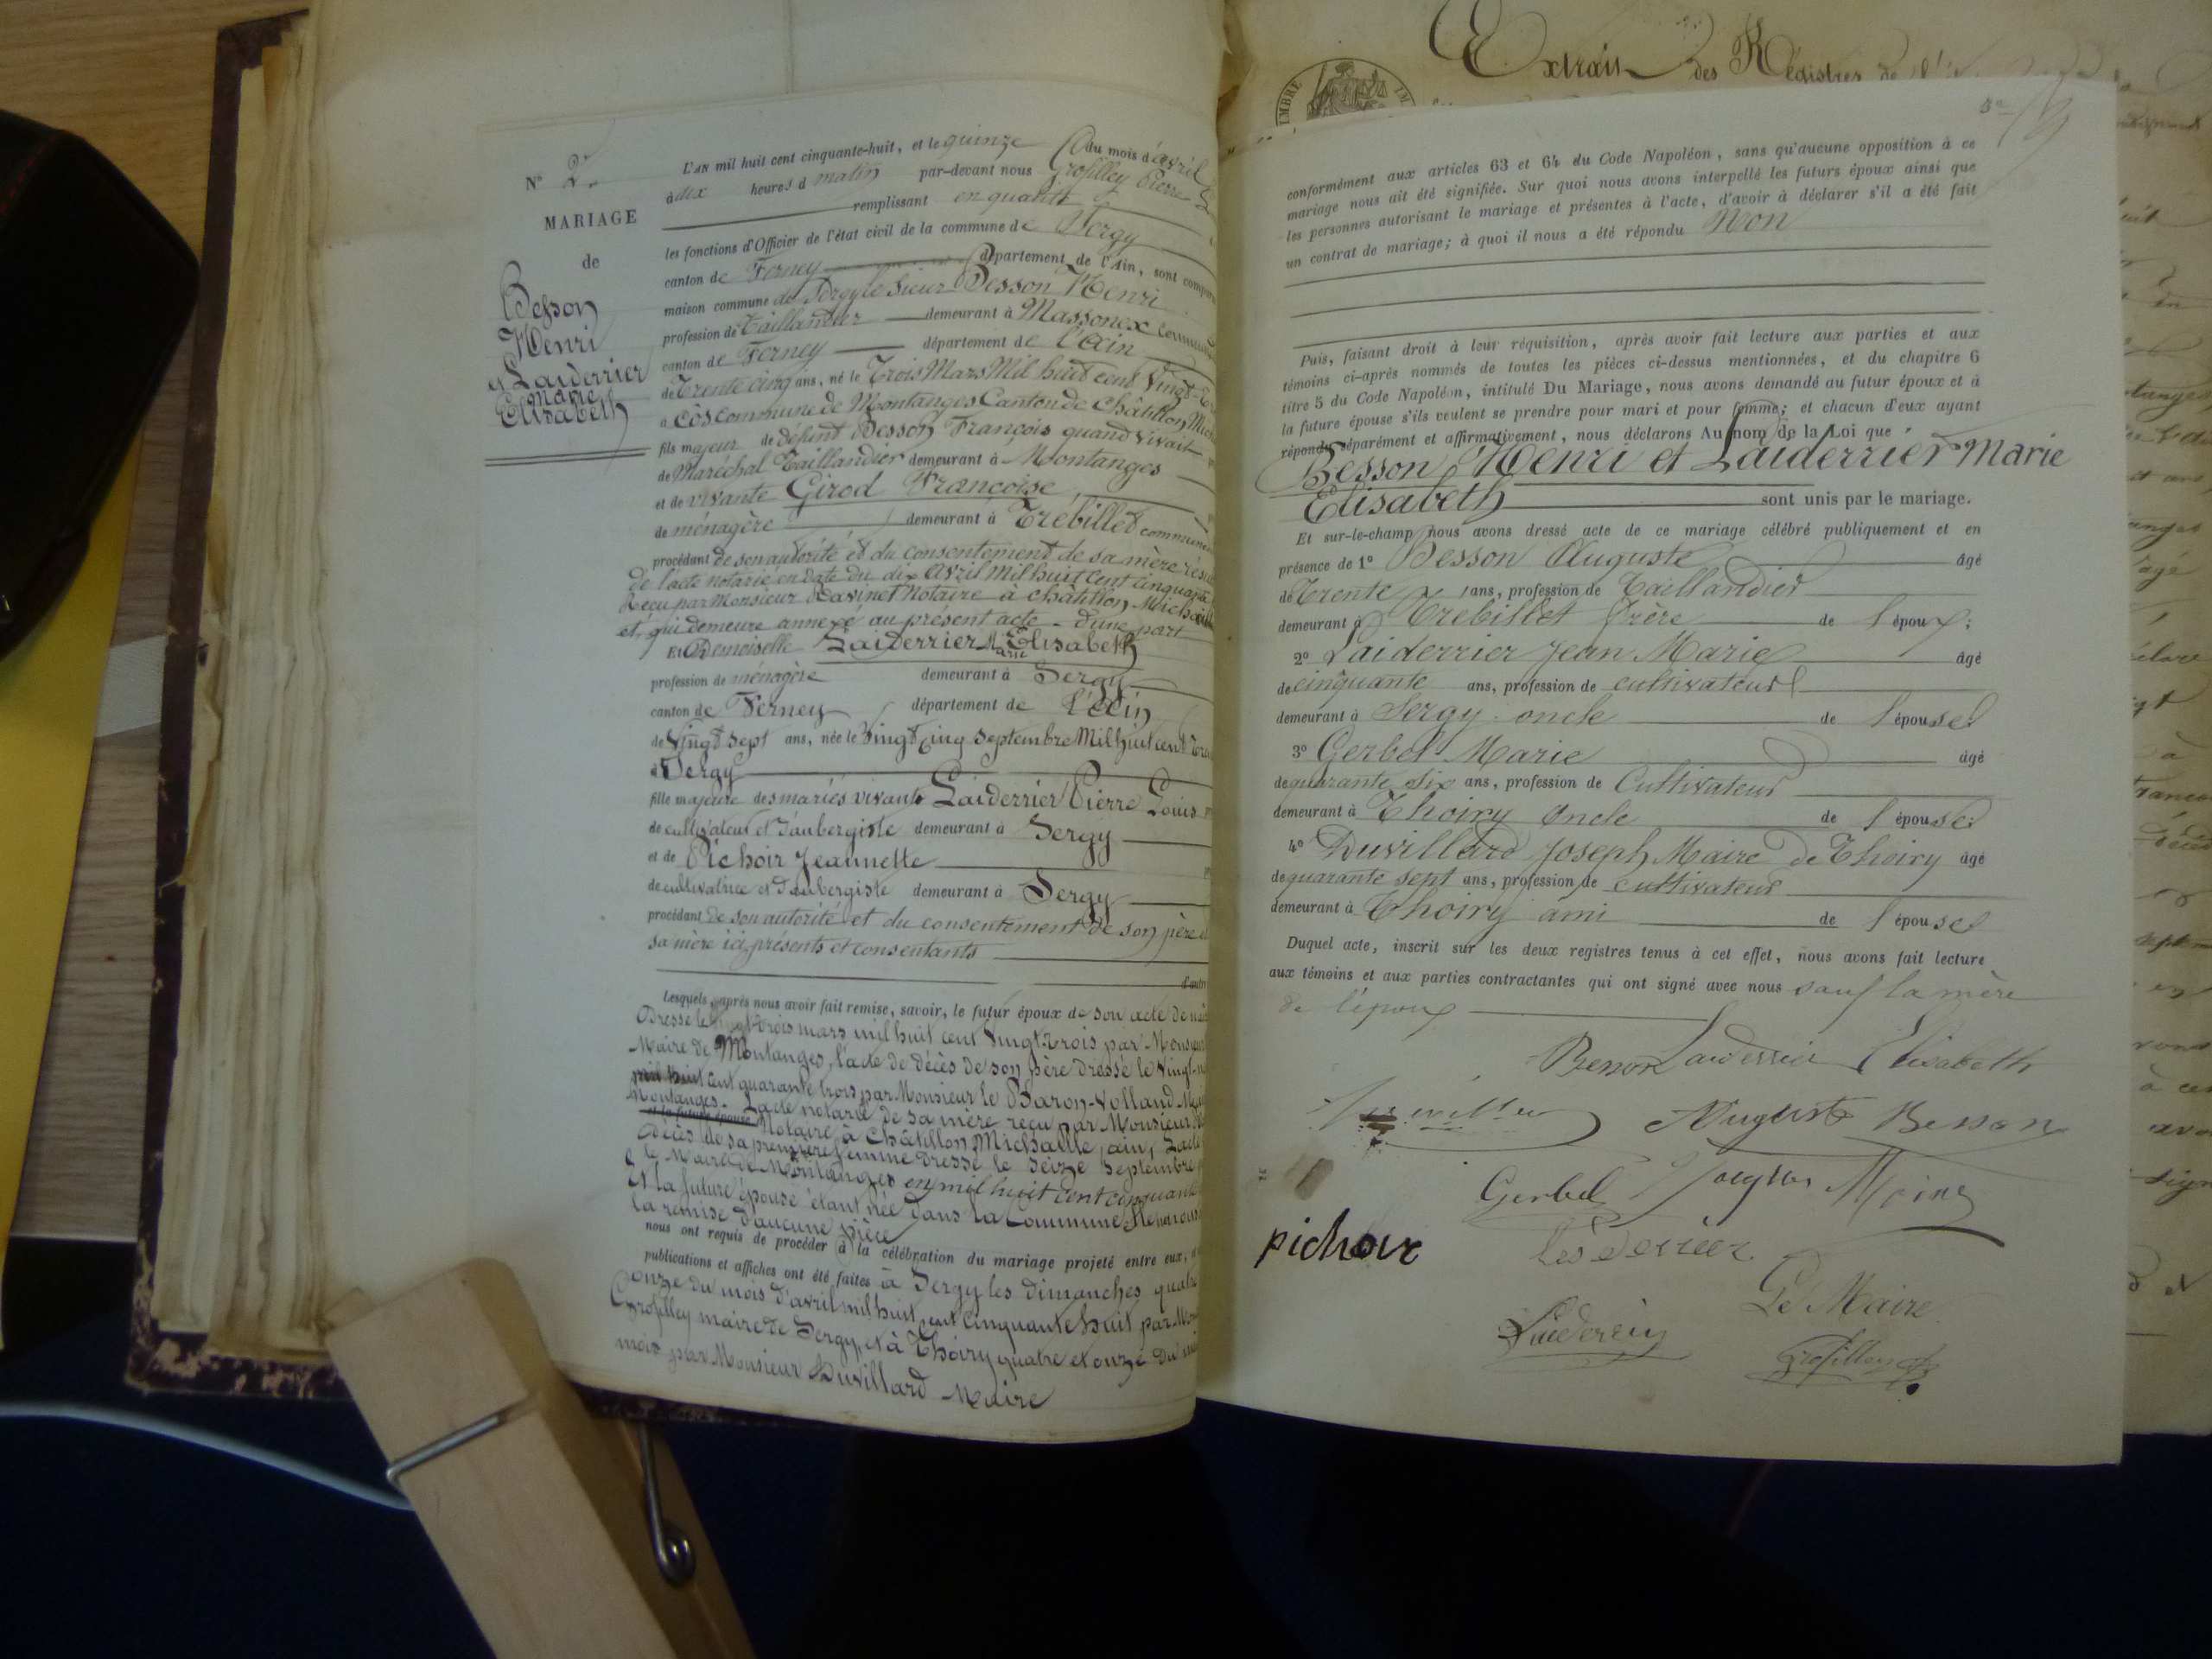 N° 2.
MARIAGE
de
Besson
Henri
et Laiderrier
Marie
Elisabeth
L'AN mil huit cent cinquante-huit, et le quinze du mois d'avril
à dix heures d matin par-devant nous Grosfilley Pierre
remplissant en qualité
les fonctions d'Officier de l'état civil de la commune de Sergy
canton de Ferney département de l'Ain, sont
maison commune de Sergy le sieur Besson Henri
profession de Taillandier demeurant à Massonex
canton de Ferney département de l'Ain
de Trente cinq ans, né le Trois Mars Mil huit cent Vingt-
a Côs commune de Montanges Canton de Châtillon
fils majeur de défunt Besson François quand vivait
de Maréchal Taillandier demeurant à Montanges
et de vivante Girod Françoise
de ménagère demeurant à Trébillet
procédant de son autorité et du consentement de sa mère
de l'acte notarié en date du dix Avril Mil huit Cent Cinquante
Reçu par Monsieur Ravinet Notaire à Châtillon Michaille
et, qui demeure annexé au présent acte - d'une part
Et Demoiselle Laiderrier Marie Elisabeth
profession de ménagère demeurant à Sergy
canton de Ferney département de l'Ain
de Vingt sept ans, née le Vingt Cinq Septembre Mil huit cent
à Sergy
fille majeure des mariés vivants Laiderrier Pierre Louis
de cultivateur et d'aubergiste demeurant à Sergy
et de Pichoir Jeannette
de cultivatrice et d'aubergiste demeurant à Sergy
procédant de son autorité et du consentement de son père et
sa mère ici présents et consentants
Lesquels, après nous avoir fait remise, savoir, le futur époux de son acte de
Dressé le vingt-trois mars mil huit cent Vingt trois par Monsieur
Maire de Montanges, l'acte de décès de son père dressé le Vingt-
mil huit cent quarante trois par Monsieur le Baron-Volland
Montanges. L'acte notarié de sa mère reçu par Monsieur
et la future épouse Notaire à Châtillon Michaille, ain,
décès de sa première femme dressé le Seize Septembre
le Maire de Montanges en mil huit cent cinquante
Et la future épouse étant née dans la Commune
la remise d'aucune pièce
nous ont requis de procéder à la célébration du mariage projeté entre eux,
publications et affiches ont été faites à Sergy les dimanches quatre
onze du mois d'avril mil huit cent Cinquante huit par
Grosfilley maire de Sergy, et à Thoiry quatre et onze du
mois par Monsieur Duvillard Maire
Extrait des Régistres de
conformément aux articles 63 et 64 du Code Napoléon, sans qu'aucune opposition à ce
mariage nous ait été signifiée. Sur quoi nous avons interpellé les futurs époux ainsi que
les personnes autorisant le mariage et présentes à l'acte, d'avoir à déclarer s'il a été fait
un contrat de mariage; à quoi il nous a été répondu Non
Puis, faisant droit à leur réquisition, après avoir fait lecture aux parties et aux
témoins ci-après nommés de toutes les pièces ci-dessus mentionnées, et du chapitre 6
titre 5 du Code Napoléon, intitulé Du Mariage, nous avons demandé au futur époux et à
la future épouse s'ils veulent se prendre pour mari et pour femme; et chacun d'eux ayant
répondu séparément et affirmativement, nous déclarons Au nom de la Loi que
Besson Henri et Laiderrier Marie
Elisabeth sont unis par le mariage.
Et sur-le-champ nous avons dressé acte de ce mariage célébré publiquement et en
présence de 1° Besson Auguste âgé
de Trente ans, profession de Taillandier
demeurant à Trébillet frère de l'époux;
2° Laiderrier Jean Marie âgé
de cinquante ans, profession de cultivateur
demeurant à Sergy oncle de l'épouse;
3° Gerbel Marie âgé
de quarante six ans, profession de Cultivateur
demeurant à Thoiry oncle de l'épouse;
4° Duvillard Joseph Maire de Thoiry âgé
de quarante sept ans, profession de cultivateur
demeurant à Thoiry ami de l'épouse
Duquel acte, inscrit sur les deux registres tenus à cet effet, nous avons fait lecture
aux témoins et aux parties contractantes qui ont signé avec nous sauf la mère
de l'époux
Besson Laiderrier Elisabeth
Auguste Besson
Gerbel
pichoir
Le Maire